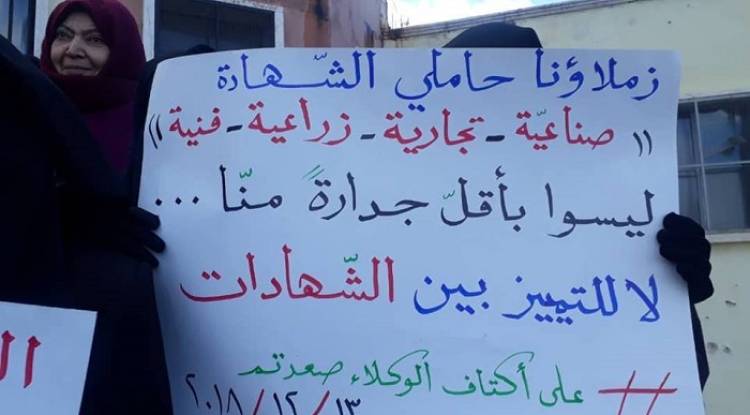 زملاؤنا حاملي الشّهادة
(( صناعيّة - تجارية - زراعية - فنية ))
ليسوا بأقلّ جدارةً منّا ...
لا للتمييز بين الشّهادات
# على أكتاف الوكلاء صعدتم
٢٠١٨/١٢/١٣